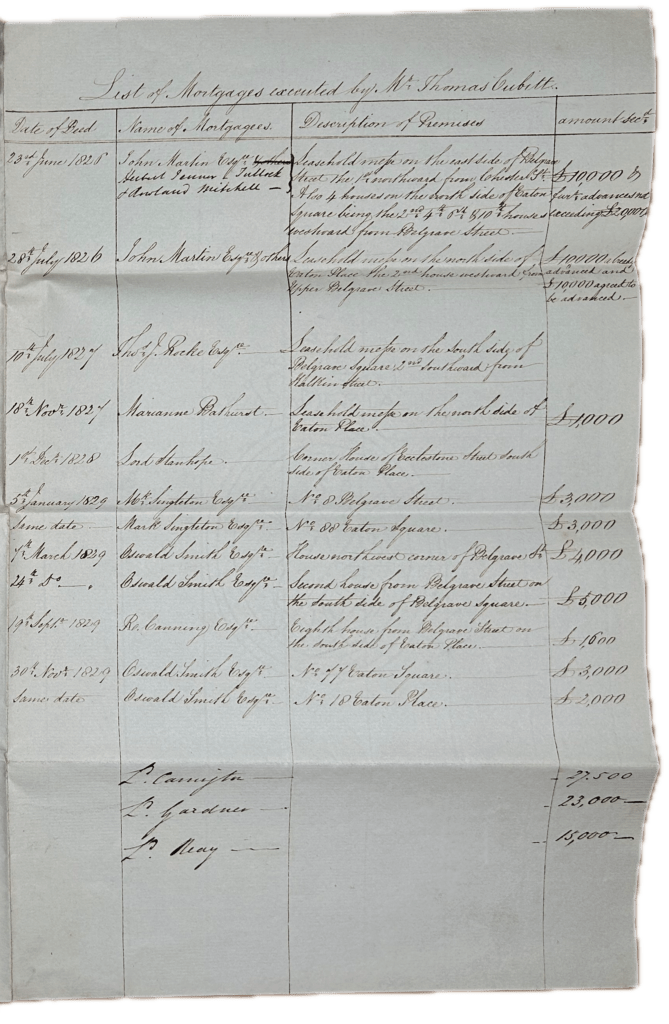 List of Mortgages executed by Mr. Thomas Cubitt.
Date of Deed Name of Mortgagees. Description of Premises amount secd.
23rd June 1826 John Martin Esqre. Leasehold messe on the east side of Belgrave £10000 &
Herbert Jenner L Tulloch Street the 1st northward from Chester St. furr. advances not
& Rowland Mitchell — Also 4 houses on the north side of Eaton exceeding £20000
Square being the 2nd 4th 6th & 10th houses
westward from Belgrave Street.
28th July 1826 John Martin Esqre & others Leasehold messe on the north side of £10000 already
Eaton Place the 2nd house westward from advanced and
Upper Belgrave Street. £10000 agreed to
be advanced.
10th July 1827 Thos. J. Rocke Esqre. Leasehold messe on the South side of
Belgrave Square 2nd Southward from
Halkin Street.
18th Novr. 1827 Marianne Bathurst. Leasehold messe on the north side of £1,000
Eaton Place.
1st Decr. 1828 Lord Stanhope. Corner House of Ecclestone Street South
side of Eaton Place.
5th January 1829 Mk. Singleton Esqre. No. 8 Belgrave Street. £3,000
Same date Mark Singleton Esqre. No. 88 Eaton Square. £3,000
7th March 1829 Oswald Smith Esqre. House northwest corner of Belgrave St. £4,000
24th Do. Oswald Smith Esqre. Second house from Belgrave Street on
the South side of Belgrave Square. £5,000
19th Septr. 1829 Ro. Canning Esqre. Eighth house from Belgrave Street on
the South side of Eaton Place. £1,600
30th Novr. 1829 Oswald Smith Esqre. No. 77 Eaton Square. £3,000
Same date Oswald Smith Esqre. No. 18 Eaton Place. £2,000
Ld. Carrington — 27.500
Ld. Gardner — 23,000
Ld. Reay — 15,000